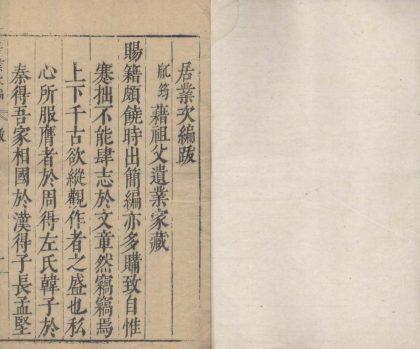 居業次編跋
胤筠藉祖父遺業家藏
賜籍頗饒時出簡編亦多購致自惟
蹇拙不能肆志於文章然竊竊焉
上下千古欲縱觀作者之盛也私
心所服膺者於周得左氏韓子於
秦得吾家相國於漢得子長孟堅